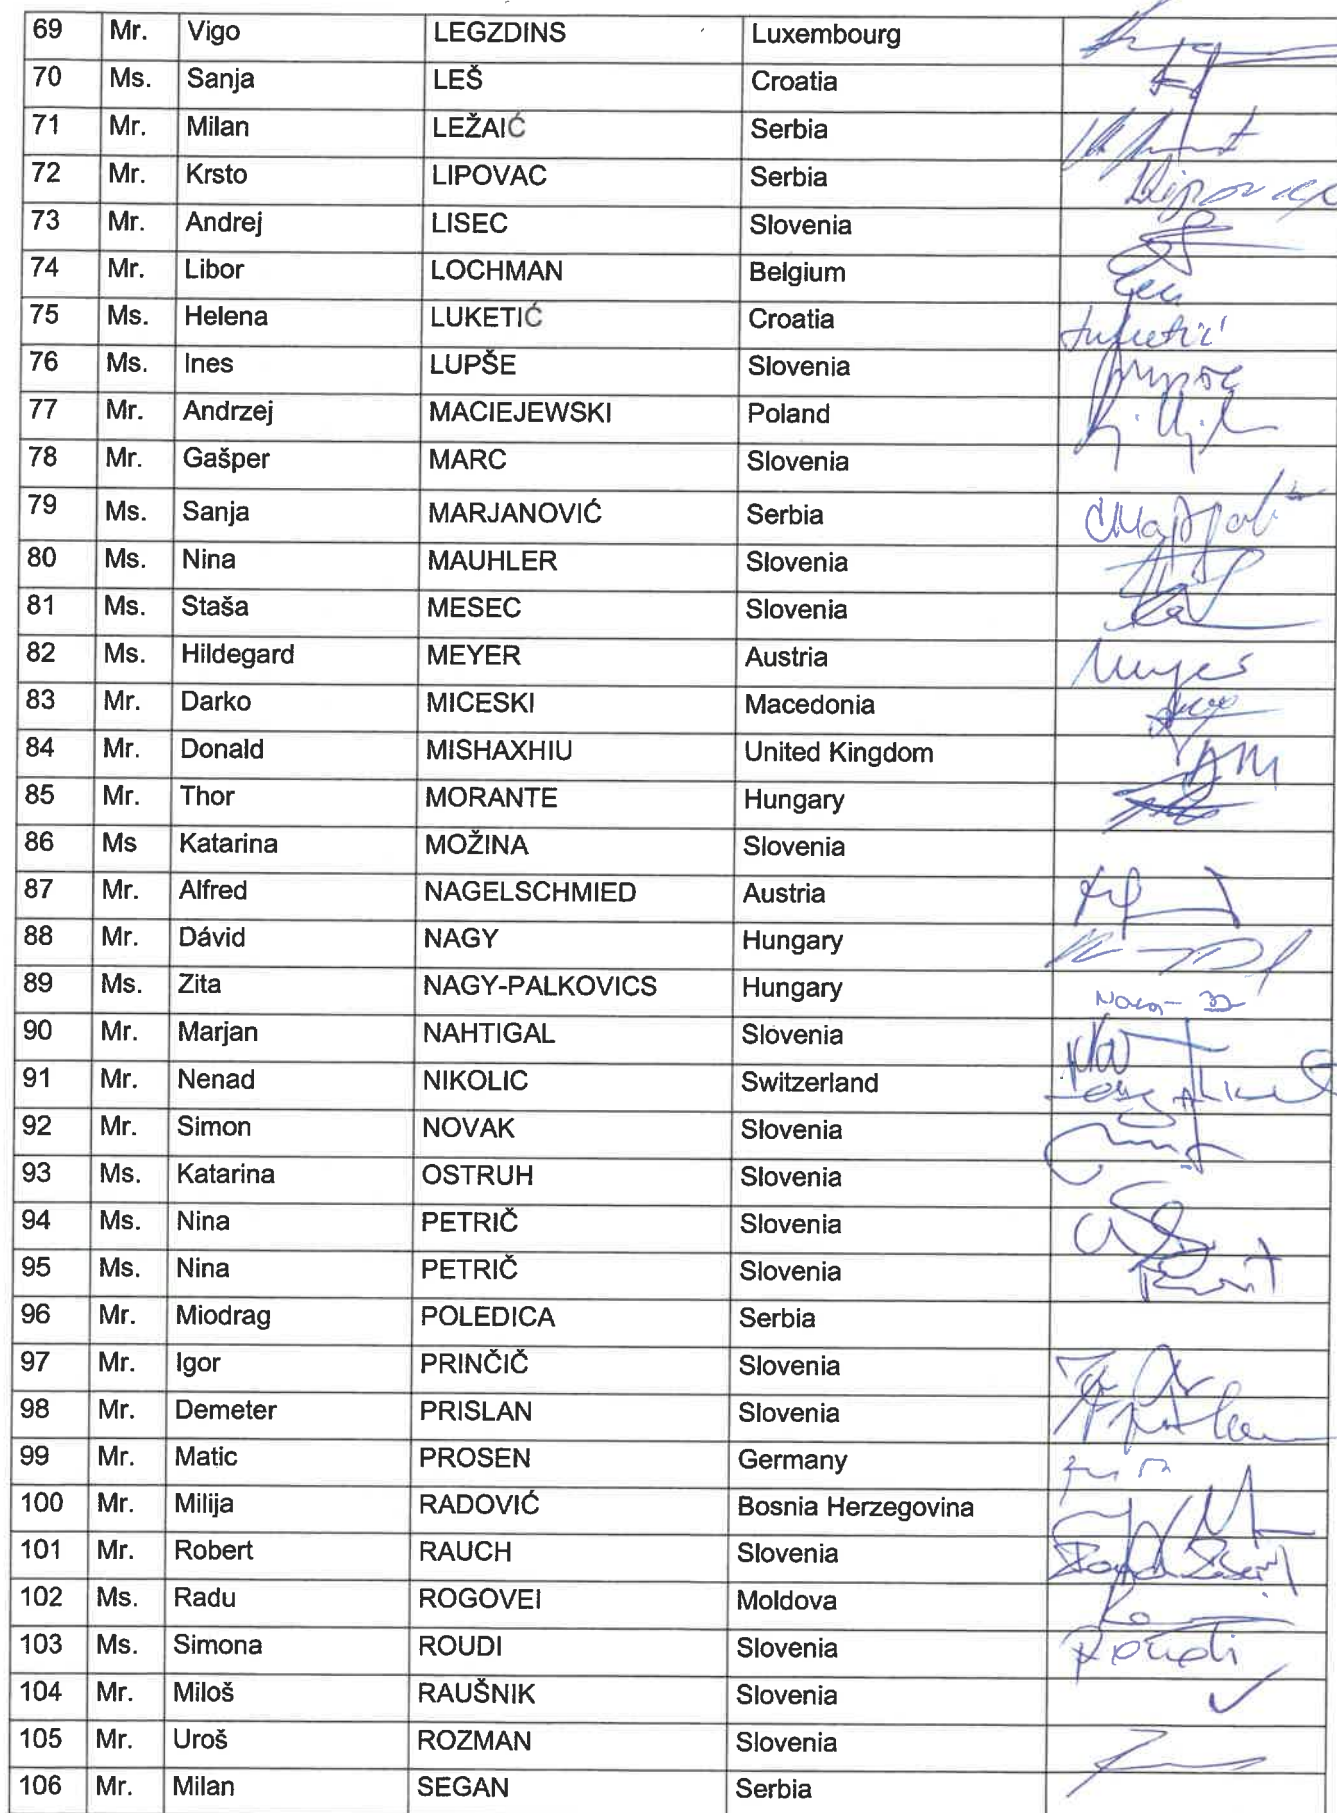 69 Mr. Vigo LEGZDINS Luxembourg
70 Ms. Sanja LEŠ Croatia
71 Mr. Milan LEŽAIĆ Serbia
72 Mr. Krsto LIPOVAC Serbia
73 Mr. Andrej LISEC Slovenia
74 Mr. Libor LOCHMAN Belgium
75 Ms. Helena LUKETIĆ Croatia
76 Ms. Ines LUPŠE Slovenia
77 Mr. Andrzej MACIEJEWSKI Poland
78 Mr. Gašper MARC Slovenia
79 Ms. Sanja MARJANOVIĆ Serbia
80 Ms. Nina MAUHLER Slovenia
81 Ms. Staša MESEC Slovenia
82 Ms. Hildegard MEYER Austria
83 Mr. Darko MICESKI Macedonia
84 Mr. Donald MISHAXHIU United Kingdom
85 Mr. Thor MORANTE Hungary
86 Ms Katarina MOŽINA Slovenia
87 Mr. Alfred NAGELSCHMIED Austria
88 Mr. Dávid NAGY Hungary
89 Ms. Zita NAGY-PALKOVICS Hungary
90 Mr. Marjan NAHTIGAL Slovenia
91 Mr. Nenad NIKOLIC Switzerland
92 Mr. Simon NOVAK Slovenia
93 Ms. Katarina OSTRUH Slovenia
94 Ms. Nina PETRIČ Slovenia
95 Ms. Nina PETRIČ Slovenia
96 Mr. Miodrag POLEDICA Serbia
97 Mr. Igor PRINČIČ Slovenia
98 Mr. Demeter PRISLAN Slovenia
99 Mr. Matic PROSEN Germany
100 Mr. Milija RADOVIĆ Bosnia Herzegovina
101 Mr. Robert RAUCH Slovenia
102 Ms. Radu ROGOVEI Moldova
103 Ms. Simona ROUDI Slovenia Roudi
104 Mr. Miloš RAUŠNIK Slovenia
105 Mr. Uroš ROZMAN Slovenia
106 Mr. Milan SEGAN Serbia